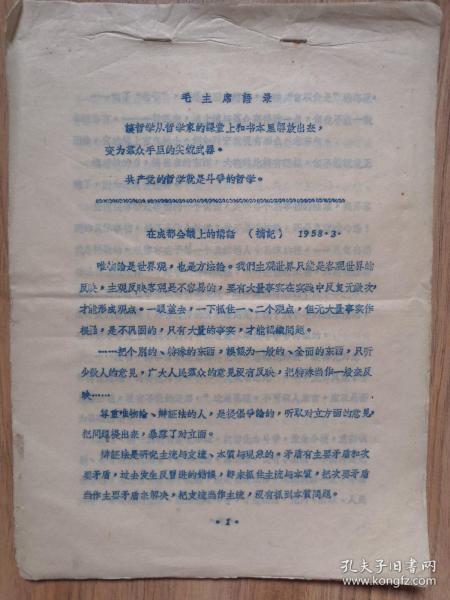 毛主席語录
讓哲学从哲学家的課堂上和书本里解放出来，
变为羣众手里的尖锐武器。
共产党的哲学就是斗争的哲学。
在成都会議上的講話（摘記）1958·3·
唯物論是世界观，也是方法論。我們主观世界只能是客观世界的
反映，主观反映客观是不容易的，要有大量事实在实践中反复无数次
才能形成观点。一眼望去，一下抓住一、二个观点，但无大量事实作
根据，是不巩固的，只有大量的事实，才能認識問題。
……把个别的、特殊的东西，誤認为一般的、全面的东西，只听
少数人的意見，广大人民羣众的意見没有反映，把特殊当作一般来反
映……
尊重唯物論、辩証法的人，是提倡爭論的，听取对立方面的意見，
把問題提出来，暴露了对立面。
辩証法是研究主流与支流、本質与現象的。矛盾有主要矛盾和次
要矛盾，过去发生反冒进的錯誤，即未抓住主流与本質，把次要矛盾
当作主要矛盾来解决，把支流当作主流，没有抓到本質問題。
·1·
孔夫子旧书网
www.kongfz.com